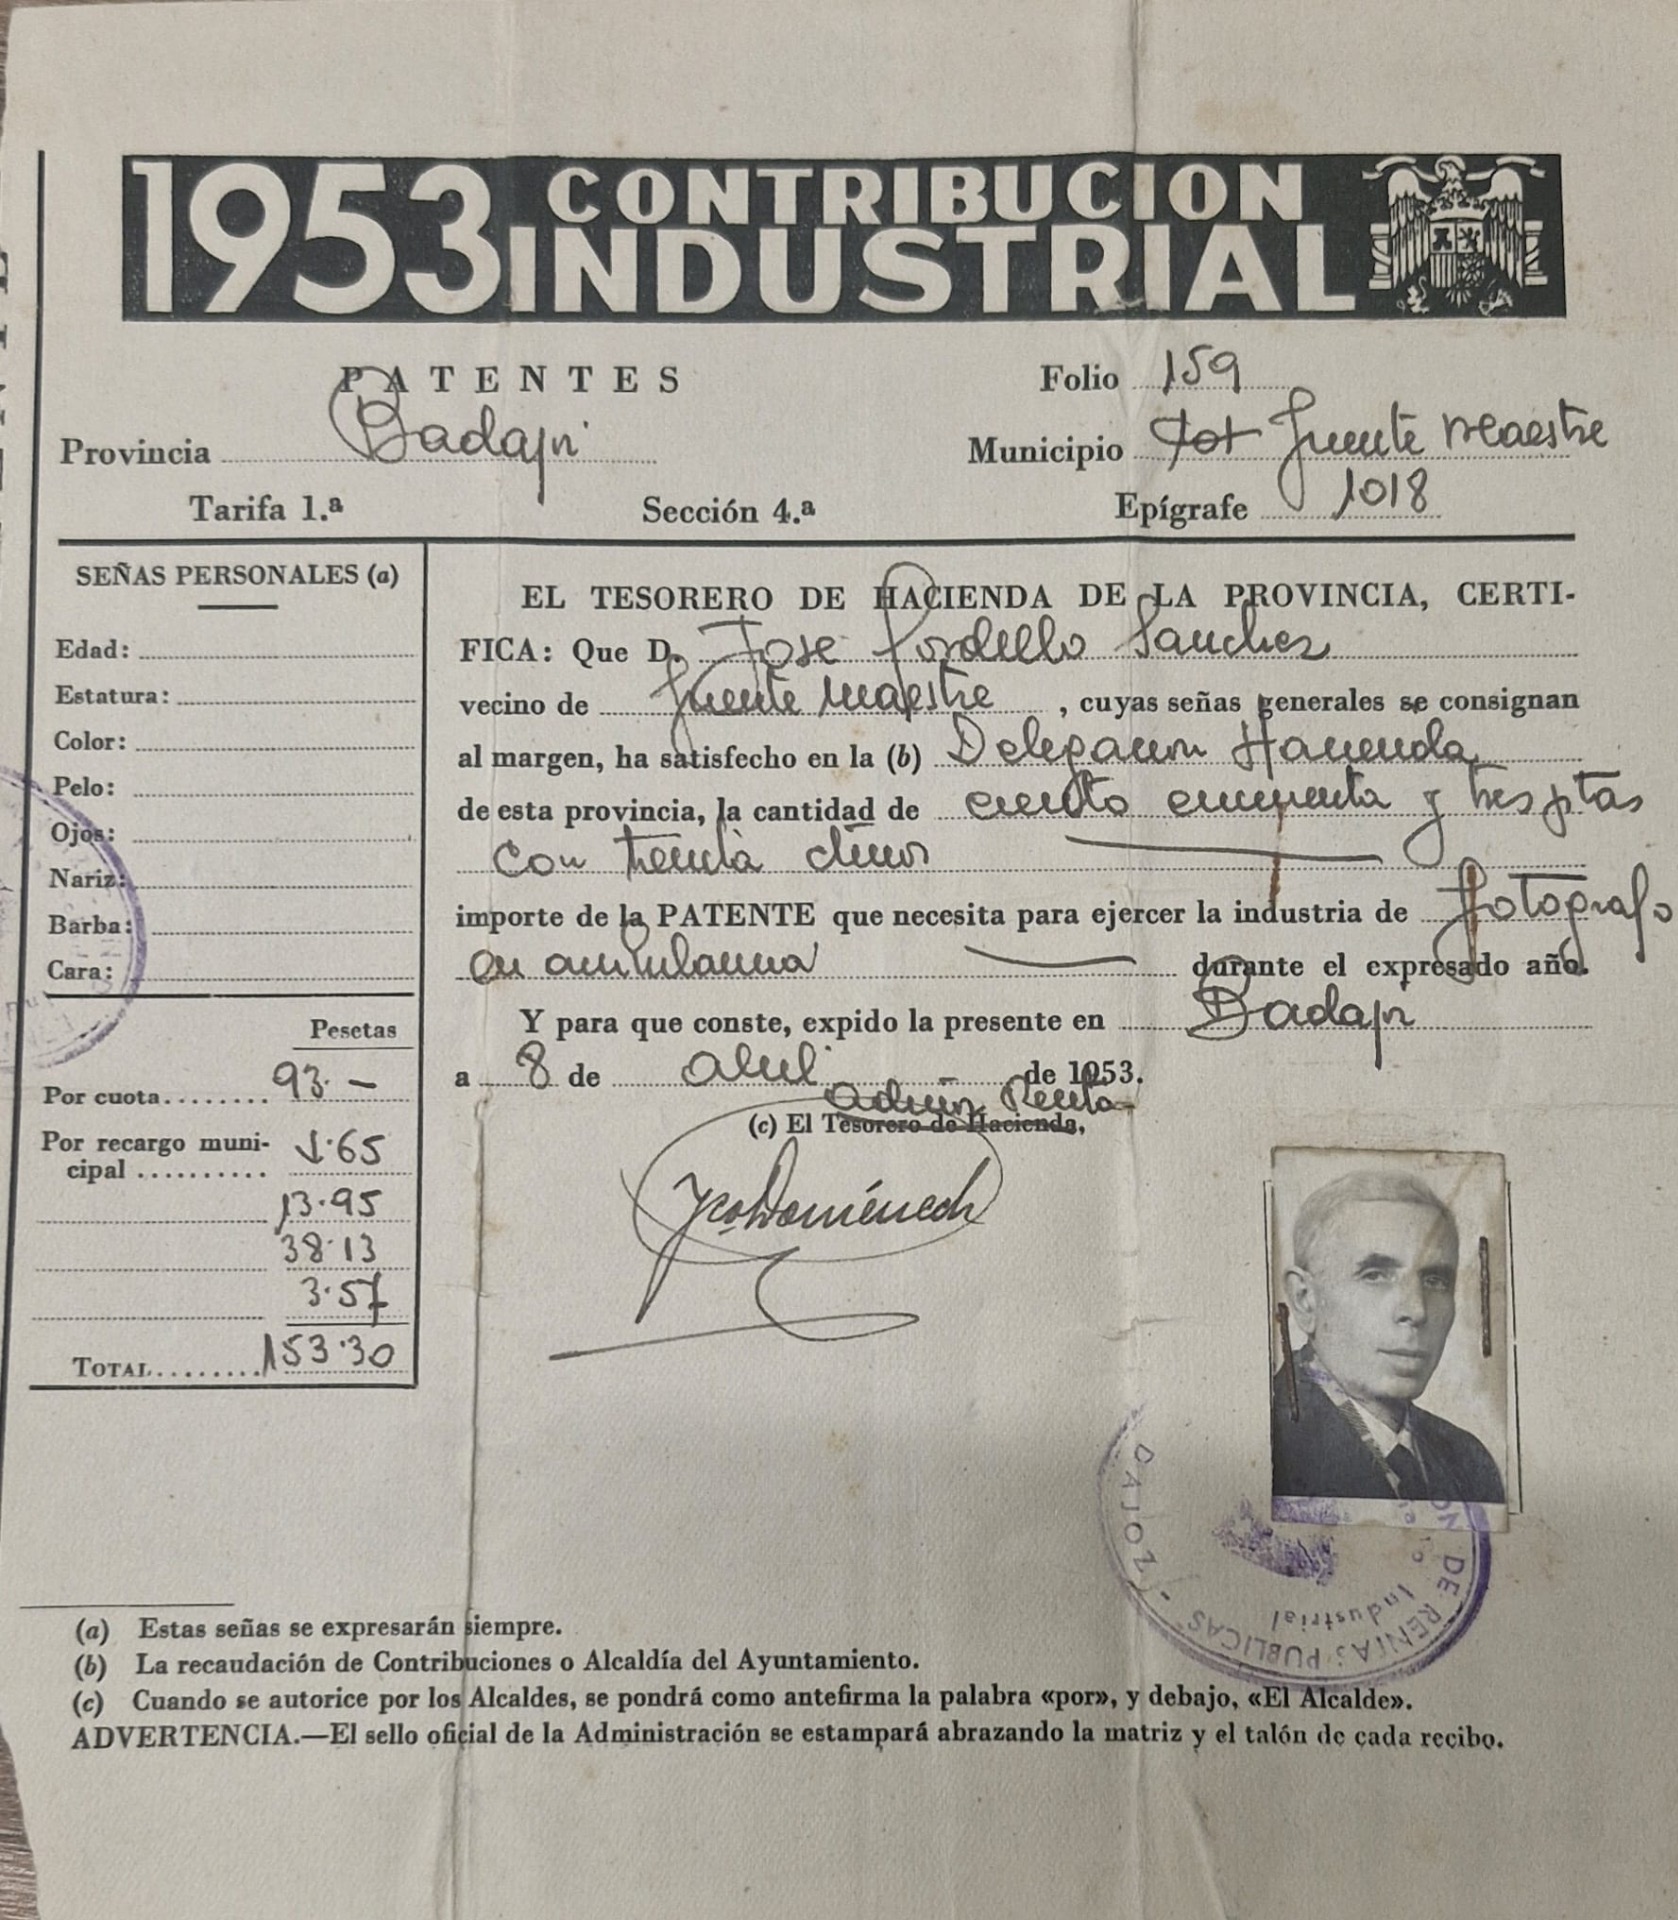 1953 CONTRIBUCION
INDUSTRIAL
PATENTES
Folio 159
Provincia Badajoz
Municipio Fuente Maestre
Tarifa 1.ª Sección 4.ª Epígrafe 1018
SEÑAS PERSONALES (a)
Edad:
Estatura:
Color:
Pelo:
Ojos:
Nariz:
Barba:
Cara:
Pesetas
Por cuota........ 93.—
Por recargo muni-
cipal .......... 4.65
13.95
38.13
3.57
TOTAL........ 153.30
EL TESORERO DE HACIENDA DE LA PROVINCIA, CERTI-
FICA: Que D. Jose Gordillo Sanchez
vecino de Fuente Maestre, cuyas señas generales se consignan
al margen, ha satisfecho en la (b) Delegacion Hacienda
de esta provincia, la cantidad de ciento cincuenta y tres ptas
con treinta ctmos
importe de la PATENTE que necesita para ejercer la industria de fotografo
en ambulancia durante el expresado año.
Y para que conste, expido la presente en Badajoz
a 8 de abril de 1953.
Admor Rentas
(c) El Tesorero de Hacienda,
Fco Doménech
DAJOZ - ON DE RENTAS PUBLICAS
Industrial
(a) Estas señas se expresarán siempre.
(b) La recaudación de Contribuciones o Alcaldía del Ayuntamiento.
(c) Cuando se autorice por los Alcaldes, se pondrá como antefirma la palabra «por», y debajo, «El Alcalde».
ADVERTENCIA.—El sello oficial de la Administración se estampará abrazando la matriz y el talón de cada recibo.